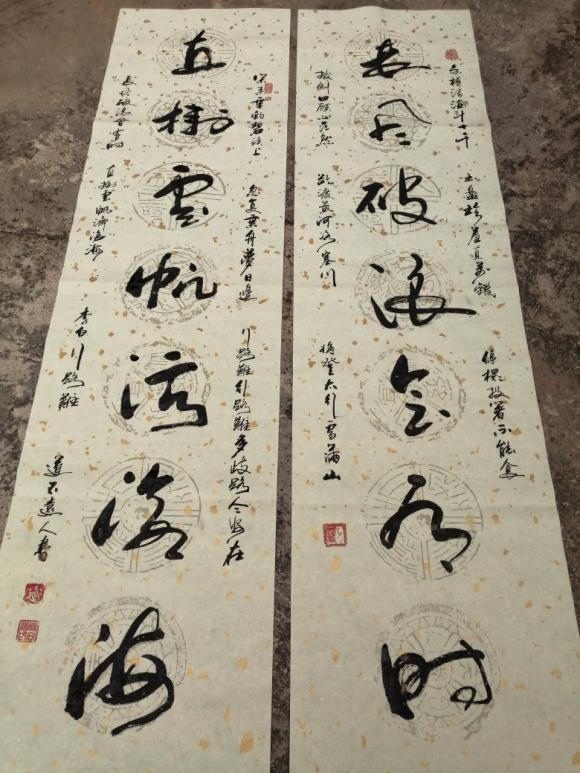 長風破浪會有時
金樽清酒斗十千
玉盤珍羞直萬錢
停杯投箸不能食
拔劍四顧心茫然
欲渡黃河冰塞川
將登太行雪滿山
直掛雲帆濟滄海
閑來垂釣碧溪上
忽復乘舟夢日邊
行路難行路難多歧路今安在
長風破浪會有時
直掛雲帆濟滄海
李白行路難
道不遠人書